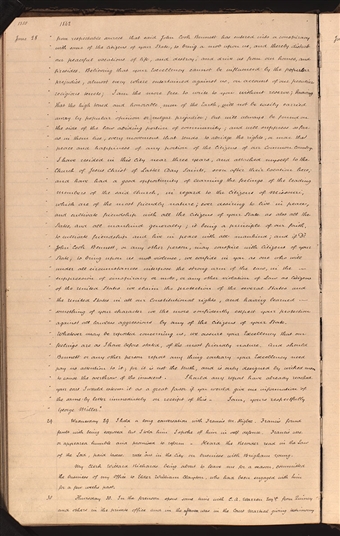 1110 1842
June 28 " from respectable sources that said John Cook Bennett has entered into a conspiracy
" with some of the citizens of your State, to bring a mob upon us, and thereby disturb
" our peaceful vocations of life, and destroy, and drive us from our homes, and
" premises. Believing that your Excellency cannot be influenced by the popular
" prejudice, almost every where entertained against us, on account of our peculiar
" religious tenets; I am the more free to write to you without reserve; knowing
" that the high toned and honorable men of the South, will not be easily carried
" away by popular opinion or vulgar prejudice; but will always be found on
" the side of the law abiding portion of community; and will suppress as far
" as in them lies, every movement that tends to abridge the rights, or mar the
" peace and happiness of any portion of the Citizens of our Common Country.
" I have resided in this city near three years, and attached myself to the
" Church of Jesus Christ of Latter Day Saints, soon after their location here,
" and have had a good opportunity of learning the feelings of the leading
" members of the said Church, in regard to the Citizens of Missouri,
" which are of the most friendly nature; ever desiring to live in peace,
" and cultivate friendship with all the citizens of your State as also all the
" States, and all mankind generally; it being a principle of our faith,
" to cultivate friendship and live in peace with all mankind; and if Dr.
" John Cook Bennett, or any other person, may conspire with Citizens of your
" State, to bring upon us mob violence, we confide in you as one who will
" under all circumstances interpose the strong arm of the law, in the
" suppression of conspiracy or mob, or any other violation of law. As Citizens
" of the United States we claim the protection of the several States and
" the United States in all our Constitutional rights, and having learned
" something of your character we the more confidently expect your protection
" against all lawless aggressions by any of the Citizens of your State.
" Whatever may be reported concerning us, we assure your Excellency that our
" feelings are as I have before stated, of the most friendly nature. And should
" Bennett or any other person report any thing contrary your Excellency need
" pay no attention to it, for it is not the truth, and is only designed by wicked men
" to cause the overthrow of the innocent. Should any report have already reached
" you I would esteem it as a great favor if you would give me information of
" the same by letter immediately on receipt of this. I am, yours respectfully
" George Miller
29 Wednesday 29. I held a long conversation with Francis M. Higbee. Francis found
fault with being exposed, but I told him I spoke of him in self defence. Francis was
or appeared humble and promised to reform. Heard the Recorder read in the Law
of the Lord, paid taxes rode out in the City on business with Brigham Young.
My Clerk Willard Richards being about to leave me for a season, committed
the business of my Office to Elder William Clayton, who had been engaged with him
for a few weeks past.
30 Thursday 30. In the forenoon spent some time with C. A. Warren Esqr. from Quincy
and others in the private office and in the afternoon was in the Court martial giving testimony